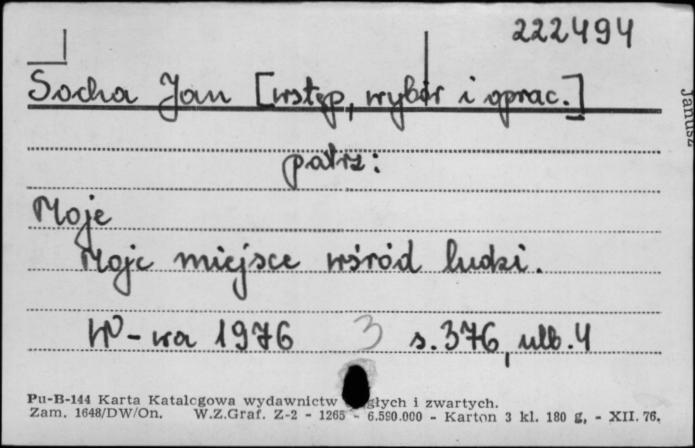 222494
Socha Jan [wstęp, wybór i oprac.]
patrz:
Moje
Moje miejsce wśród ludzi.
W-wa 1976 3 s.376, nlb.4
Pu-B-144 Karta Katalogowa wydawnictw ciągłych i zwartych.
Zam. 1648/DW/On. W.Z.Graf. Z-2 - 1265 - 6.590.000 - Karton 3 kl. 180 g, - XII. 76.
Janusz